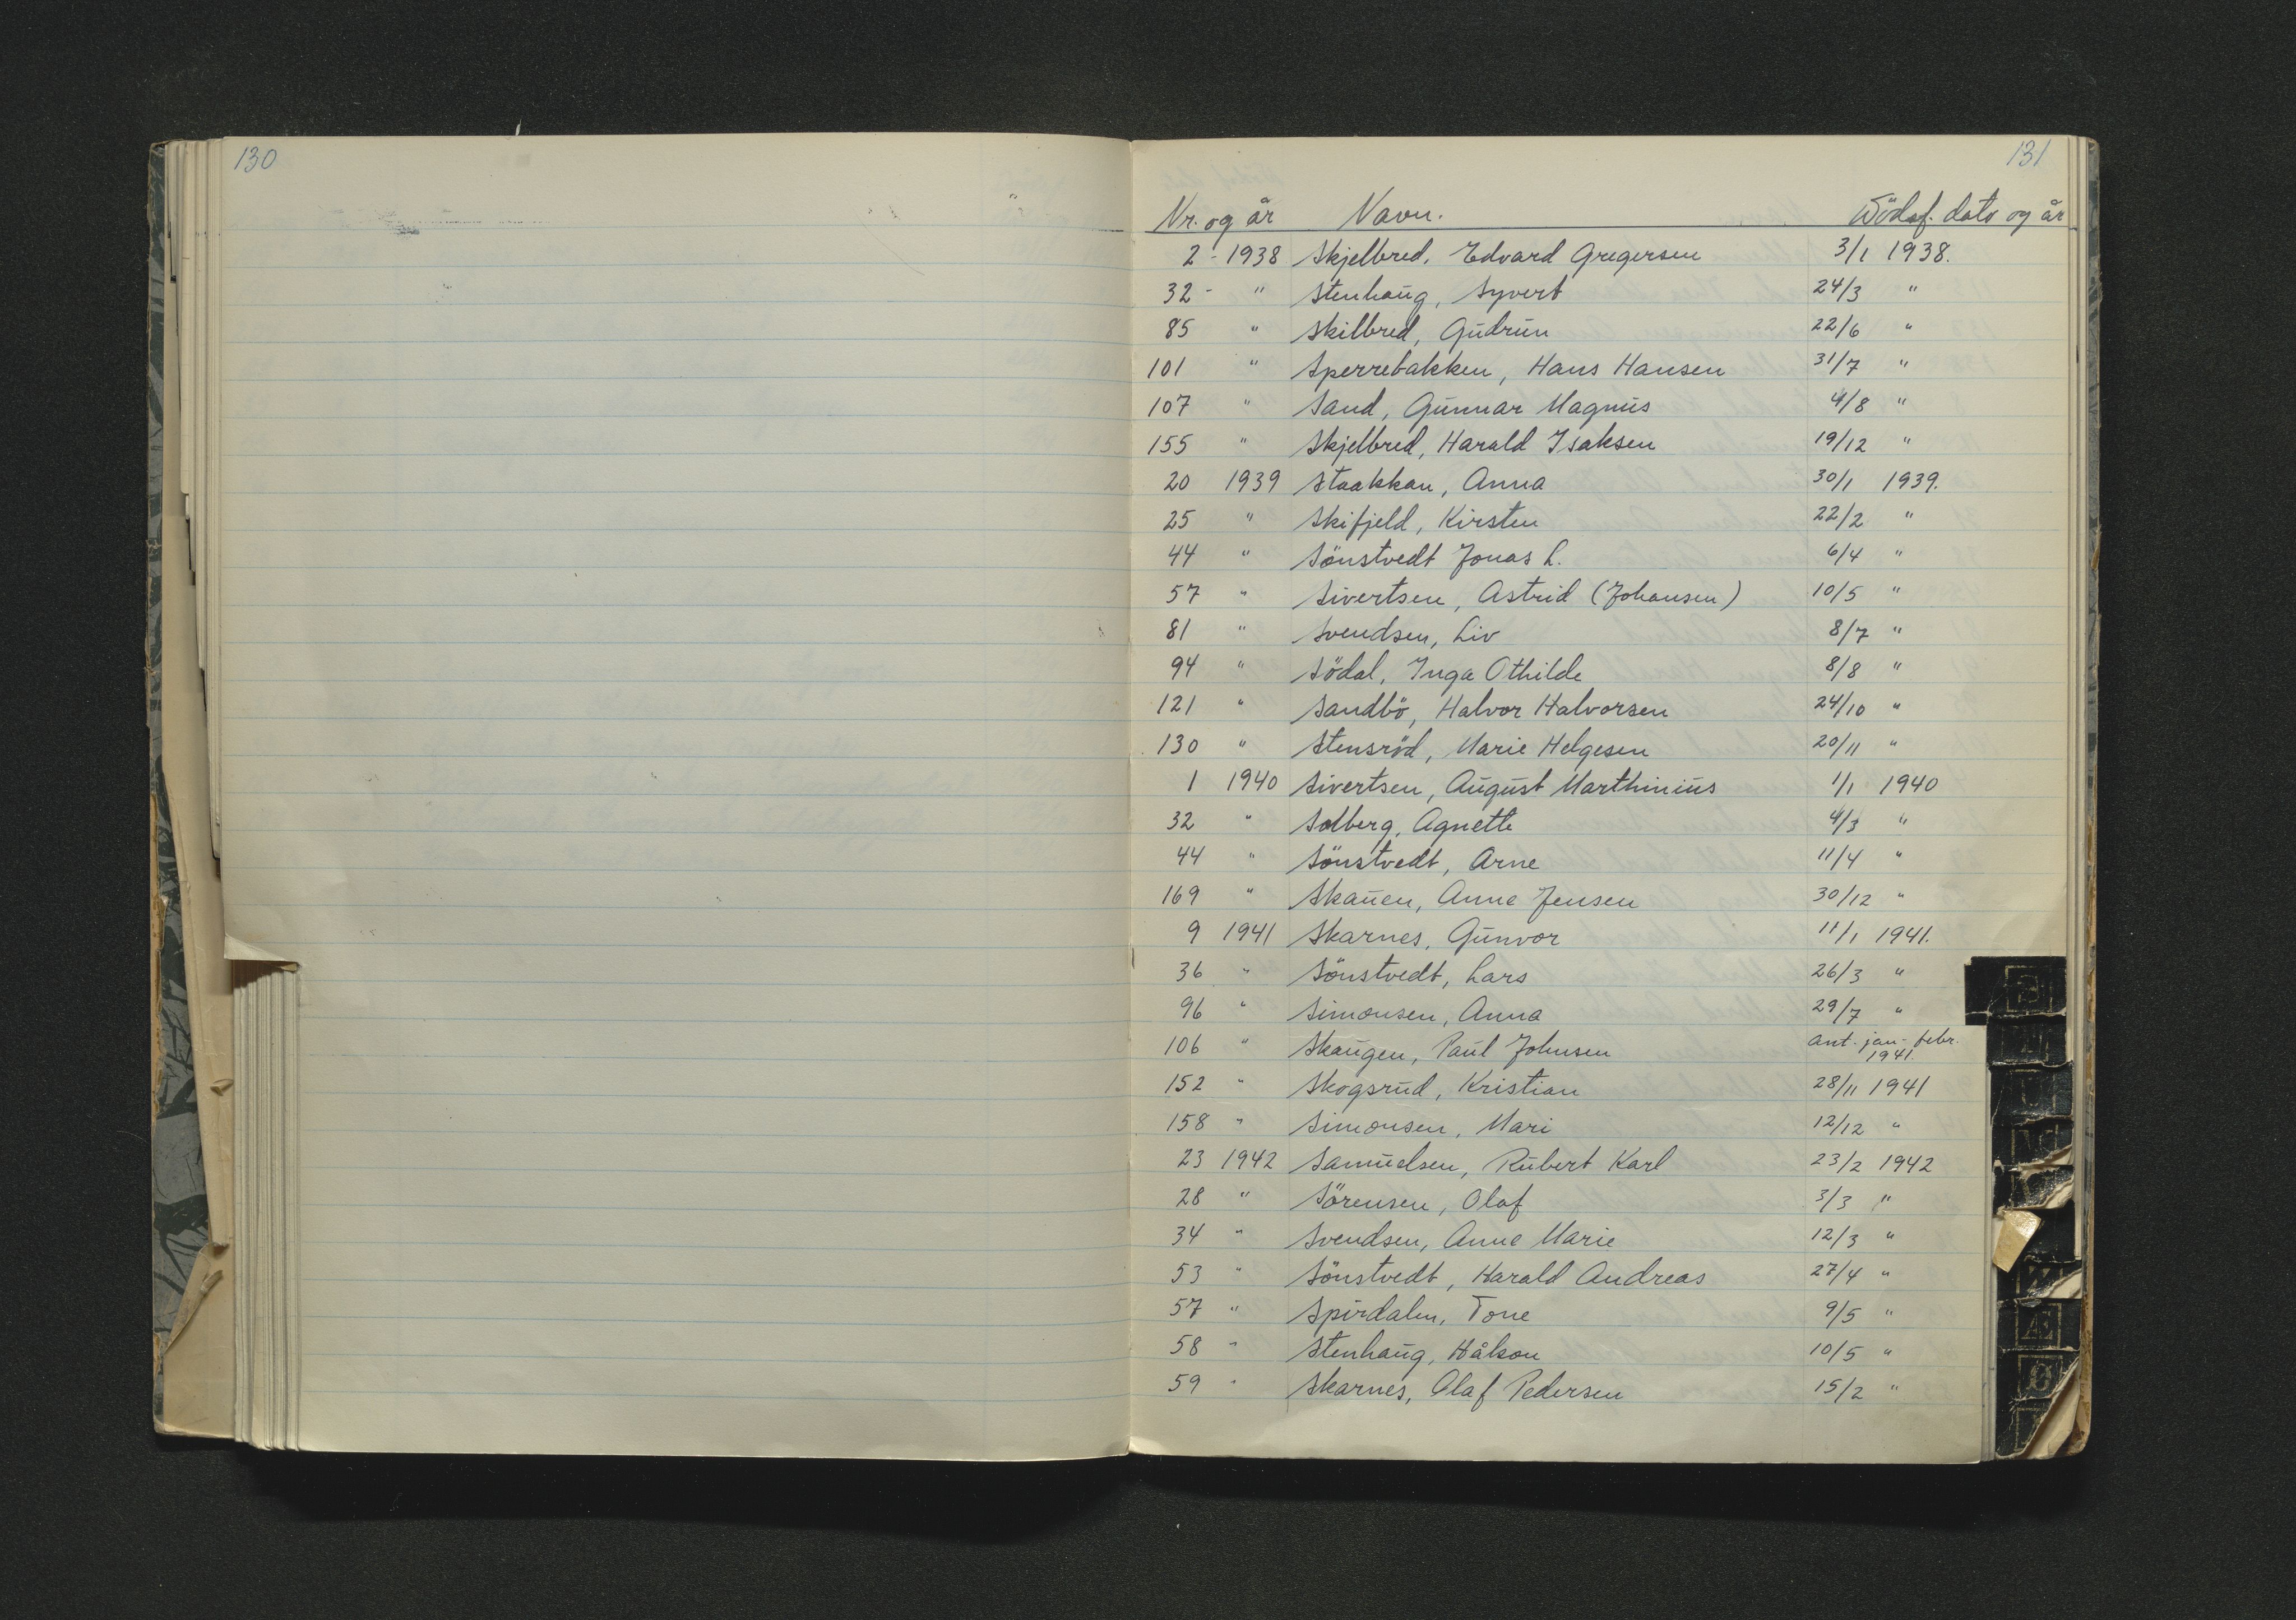 130
131
Nr. og år Navn. Dödsf. dato og år
2 - 1938 Skjelbred, Edvard Gregersen 3/1 1938.
32 - " Stenhaug, Syvert 24/3 "
85 " Skilbred, Gudrun 22/6 "
101 " Sperrebakken, Hans Hansen 31/7 "
107 " Sand, Gunnar Magnus 4/8 "
155 " Skjelbred, Harald Isaksen 19/12 "
20 1939 Staakkan, Anna 30/1 1939.
25 " Skifjeld, Kirsten 22/2 "
44 " Sönstvedt Jonas L. 6/4 "
57 " Sivertsen, Astrid (Johansen) 10/5 "
81 " Svendsen, Liv 8/7 "
94 " Södal, Inga Othilde 8/8 "
121 " Sandbö, Halvor Halvorsen 24/10 "
130 " Stensröd, Marie Helgesen 20/11 "
1 1940 Sivertsen, August Marthinius 1/1 1940
32 " Solberg, Agnette 4/3 "
44 " Sönstvedt, Arne 11/4 "
169 " Skauen, Anne Jensen 30/12 "
9 1941 Skarnes, Gunvor 11/1 1941.
36 " Sönstvedt, Lars 26/3 "
96 " Simonsen, Anna 29/7 "
106 " Skaugen, Paul Johnsen ant. jan - febr.
1941.
152 " Skogsrud, Kristian 28/11 1941
158 " Simonsen, Mari 12/12 "
23 1942 Samuelsen, Rubert Karl 23/2 1942
28 " Sörensen, Olaf 3/3 "
34 " Svendsen, Anne Marie 12/3 "
53 " Sönstvedt, Harald Andreas 27/4 "
57 " Spirdalen, Tone 9/5 "
58 " Stenhaug, Håkon 10/5 "
59 " Skarnes, Olaf Pedersen 15/2 "
S
U
Æ
Ø